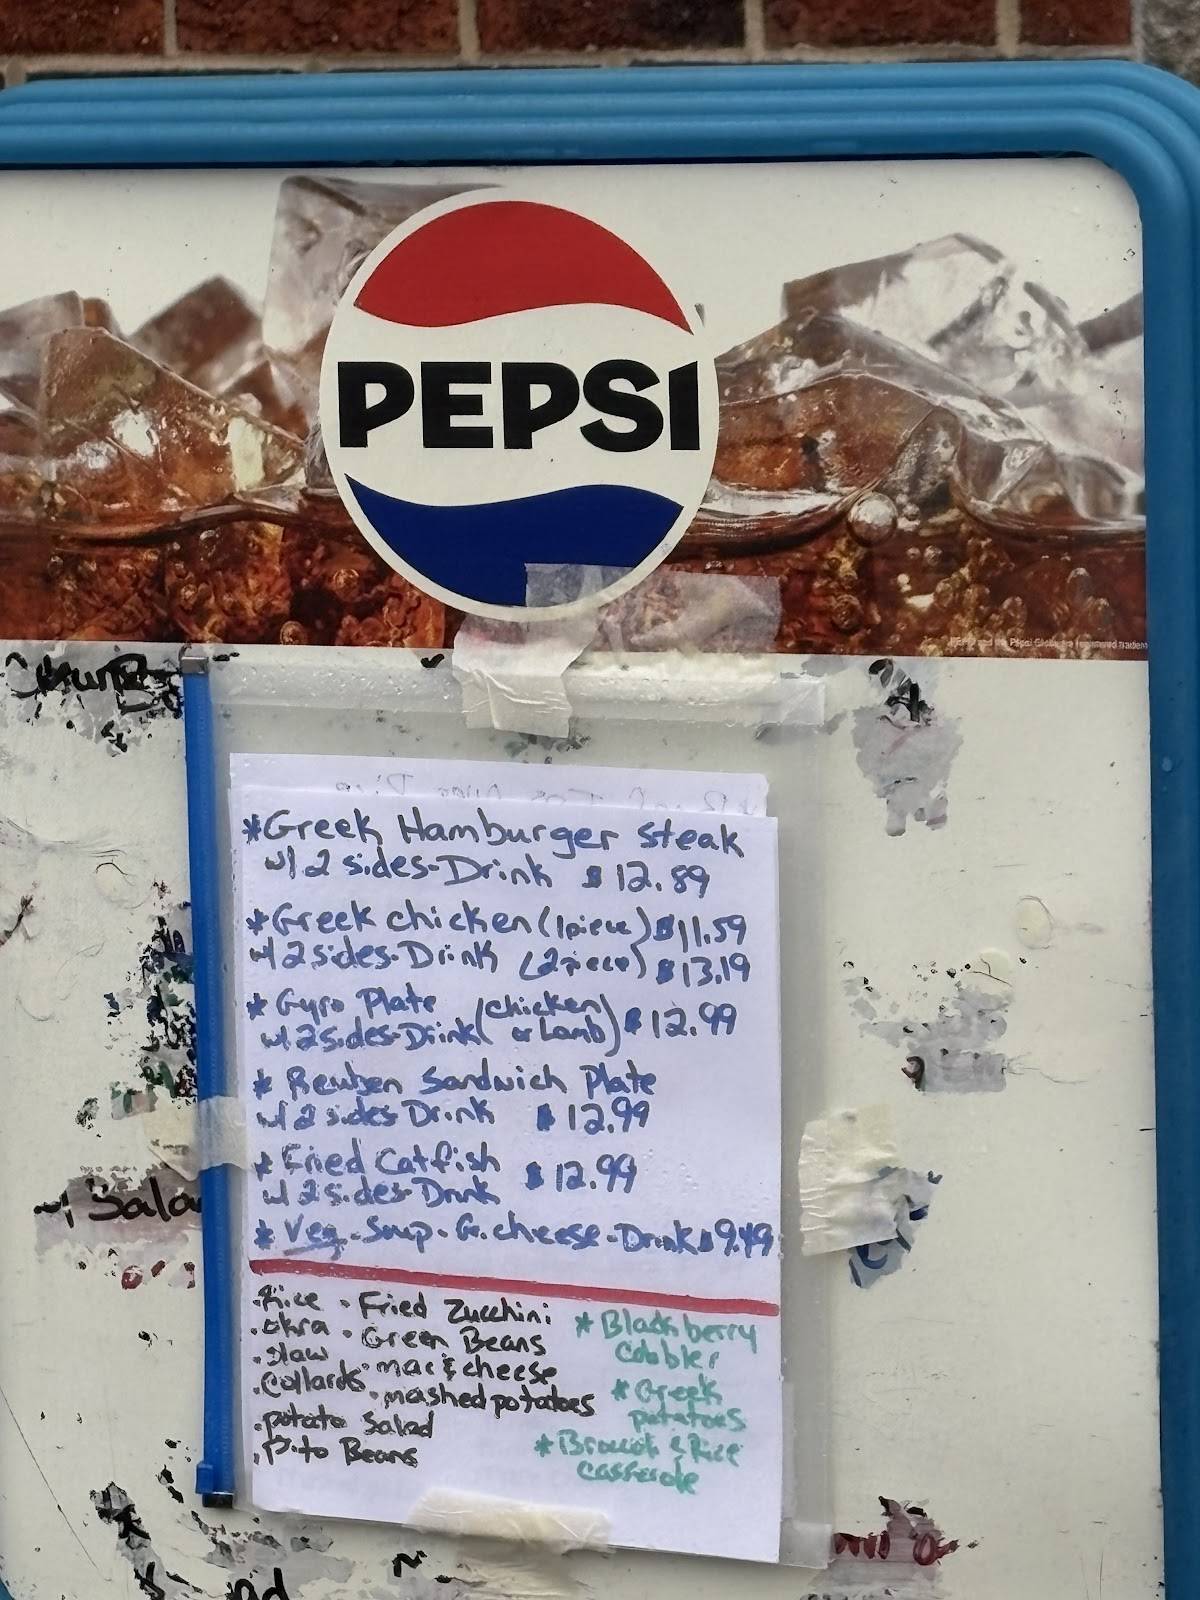 PEPSI
PEPSI and the Pepsi Globe are registered tradem
*Greek Hamburger Steak
w/ 2 sides-Drink $12.89
*Greek chicken (1piece) $11.59
w/ 2 sides-Drink (2piece) $13.19
* Gyro Plate (chicken
w/ 2 sides-Drink or Lamb) $12.99
* Reuben Sandwich Plate
w/ 2 sides-Drink $12.99
* Fried Catfish
w/ 2 sides-Drink $12.99
* Veg. Soup. Gr. cheese-Drink $9.49
.Rice . Fried Zucchini
.okra . Green Beans
.slaw . mac & cheese
.Collards . mashed potatoes
.potato Salad
.Pinto Beans
* Blackberry
cobbler
* Greek
potatoes
*Brocoli & Rice
casserole
w/ Sala